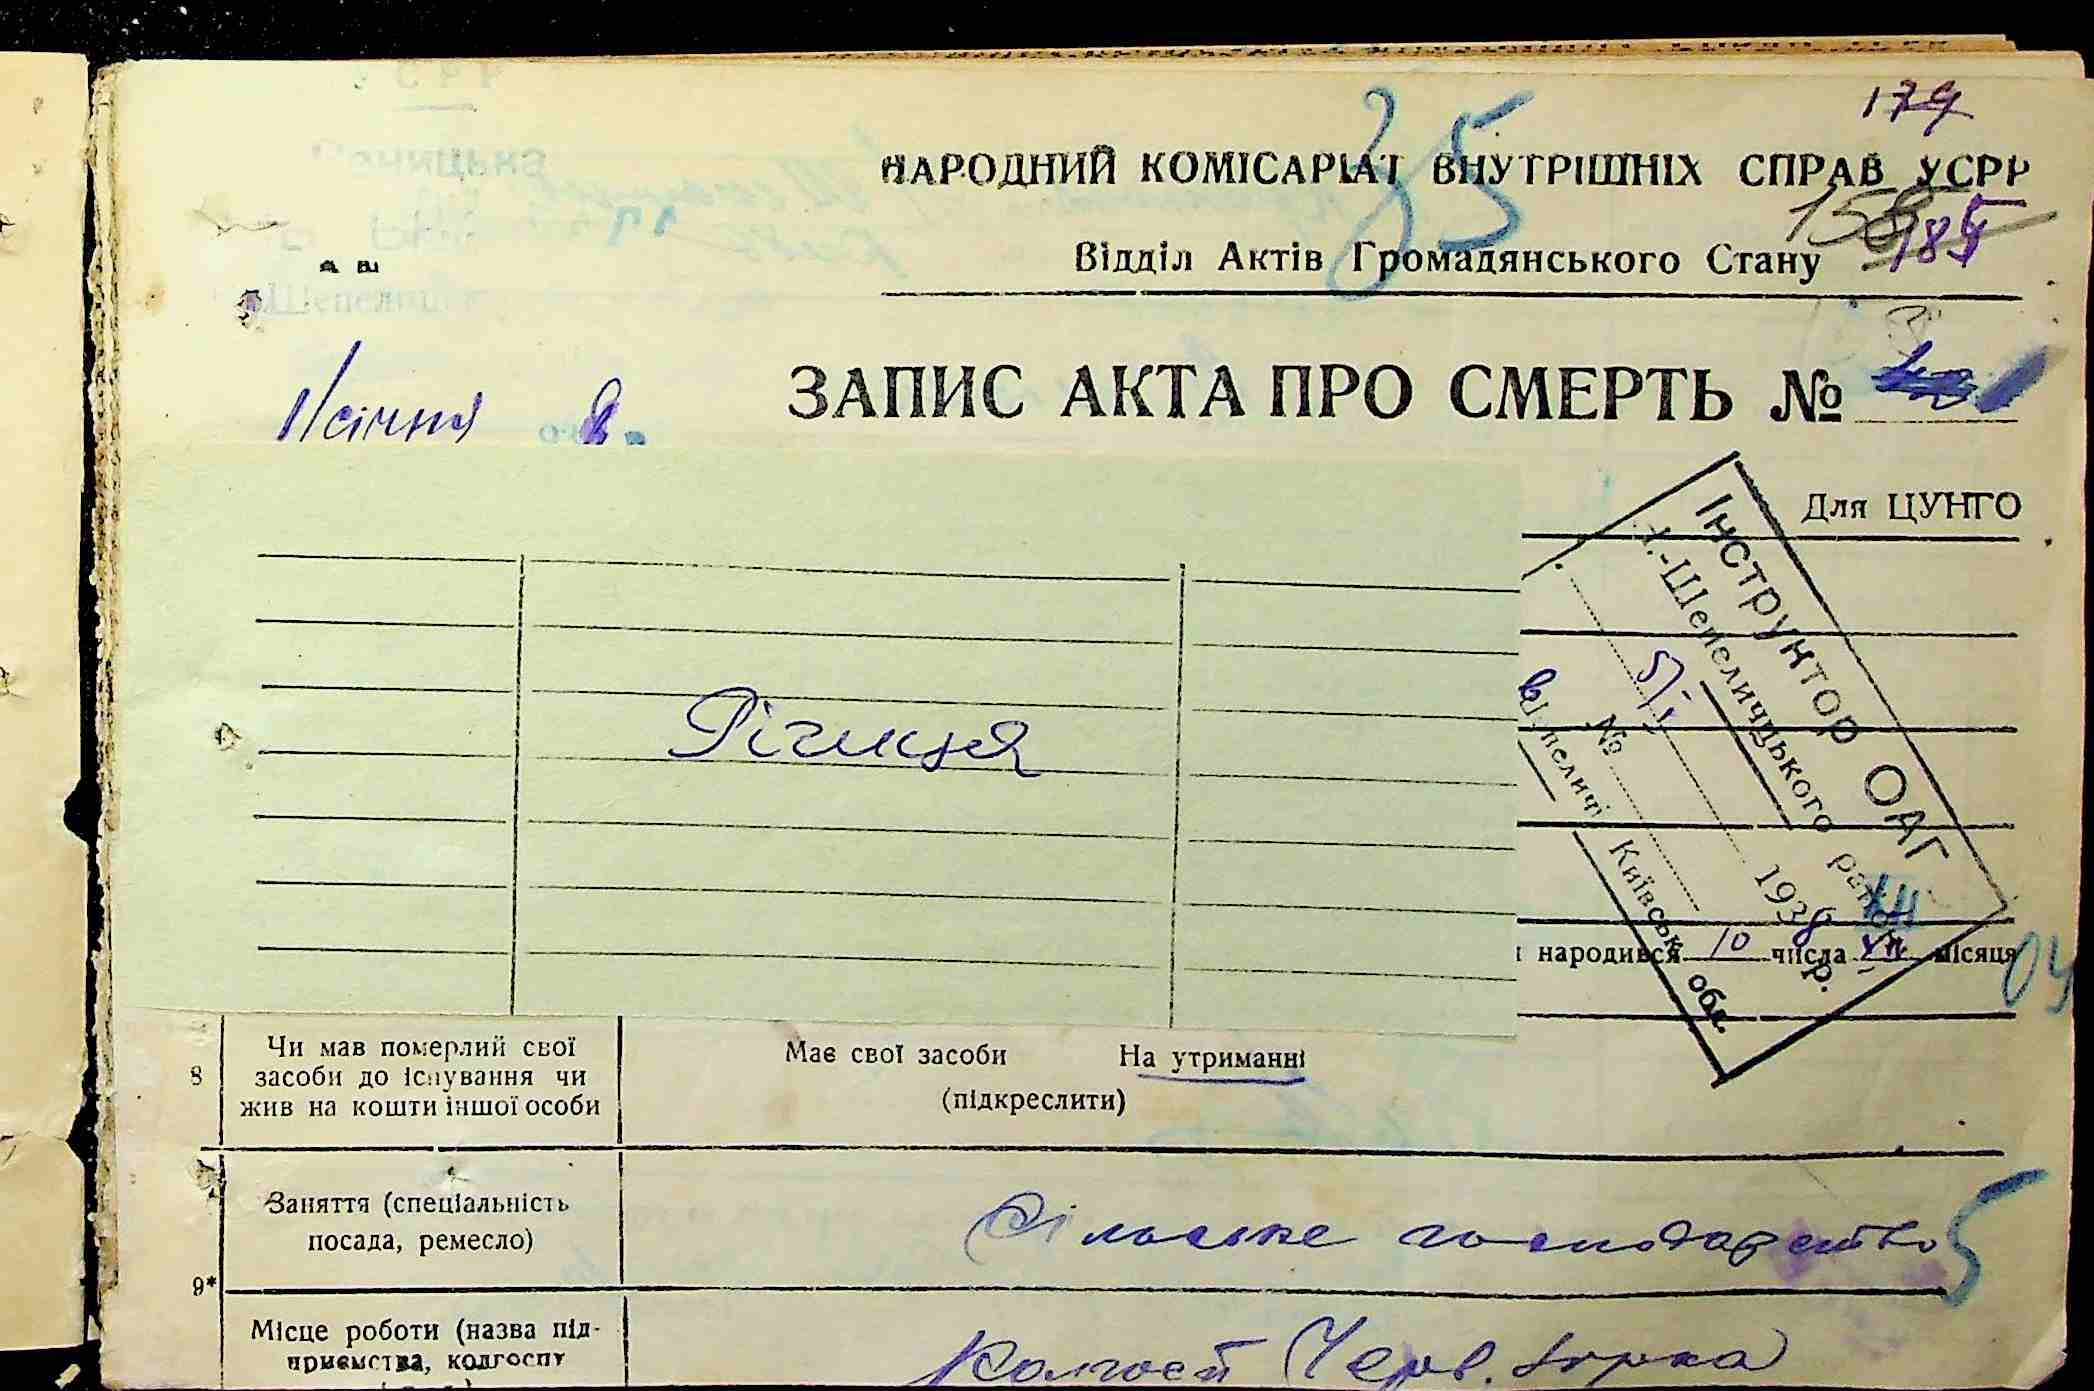 179
35
НАРОДНИЙ КОМІСАРІАТ ВНУТРІШНІХ СПРАВ УСРР
Відділ Актів Громадянського Стану
185
1/січня
ЗАПИС АКТА ПРО СМЕРТЬ №
Для ЦУНГО
Інструктор ОАГ
Шепеличцького району
5/І 1938 р.
№
Київськ. обл.
Річиця
народився 10 числа VII місяця
04
8
Чи мав померлий свої
засоби до існування чи
жив на кошти іншої особи
Має свої засоби На утриманні
(підкреслити)
Заняття (спеціальність
посада, ремесло)
Сільське господарство
5
9*
Місце роботи (назва під-
приємства, колгоспу
Колгосп Черв. Зірка